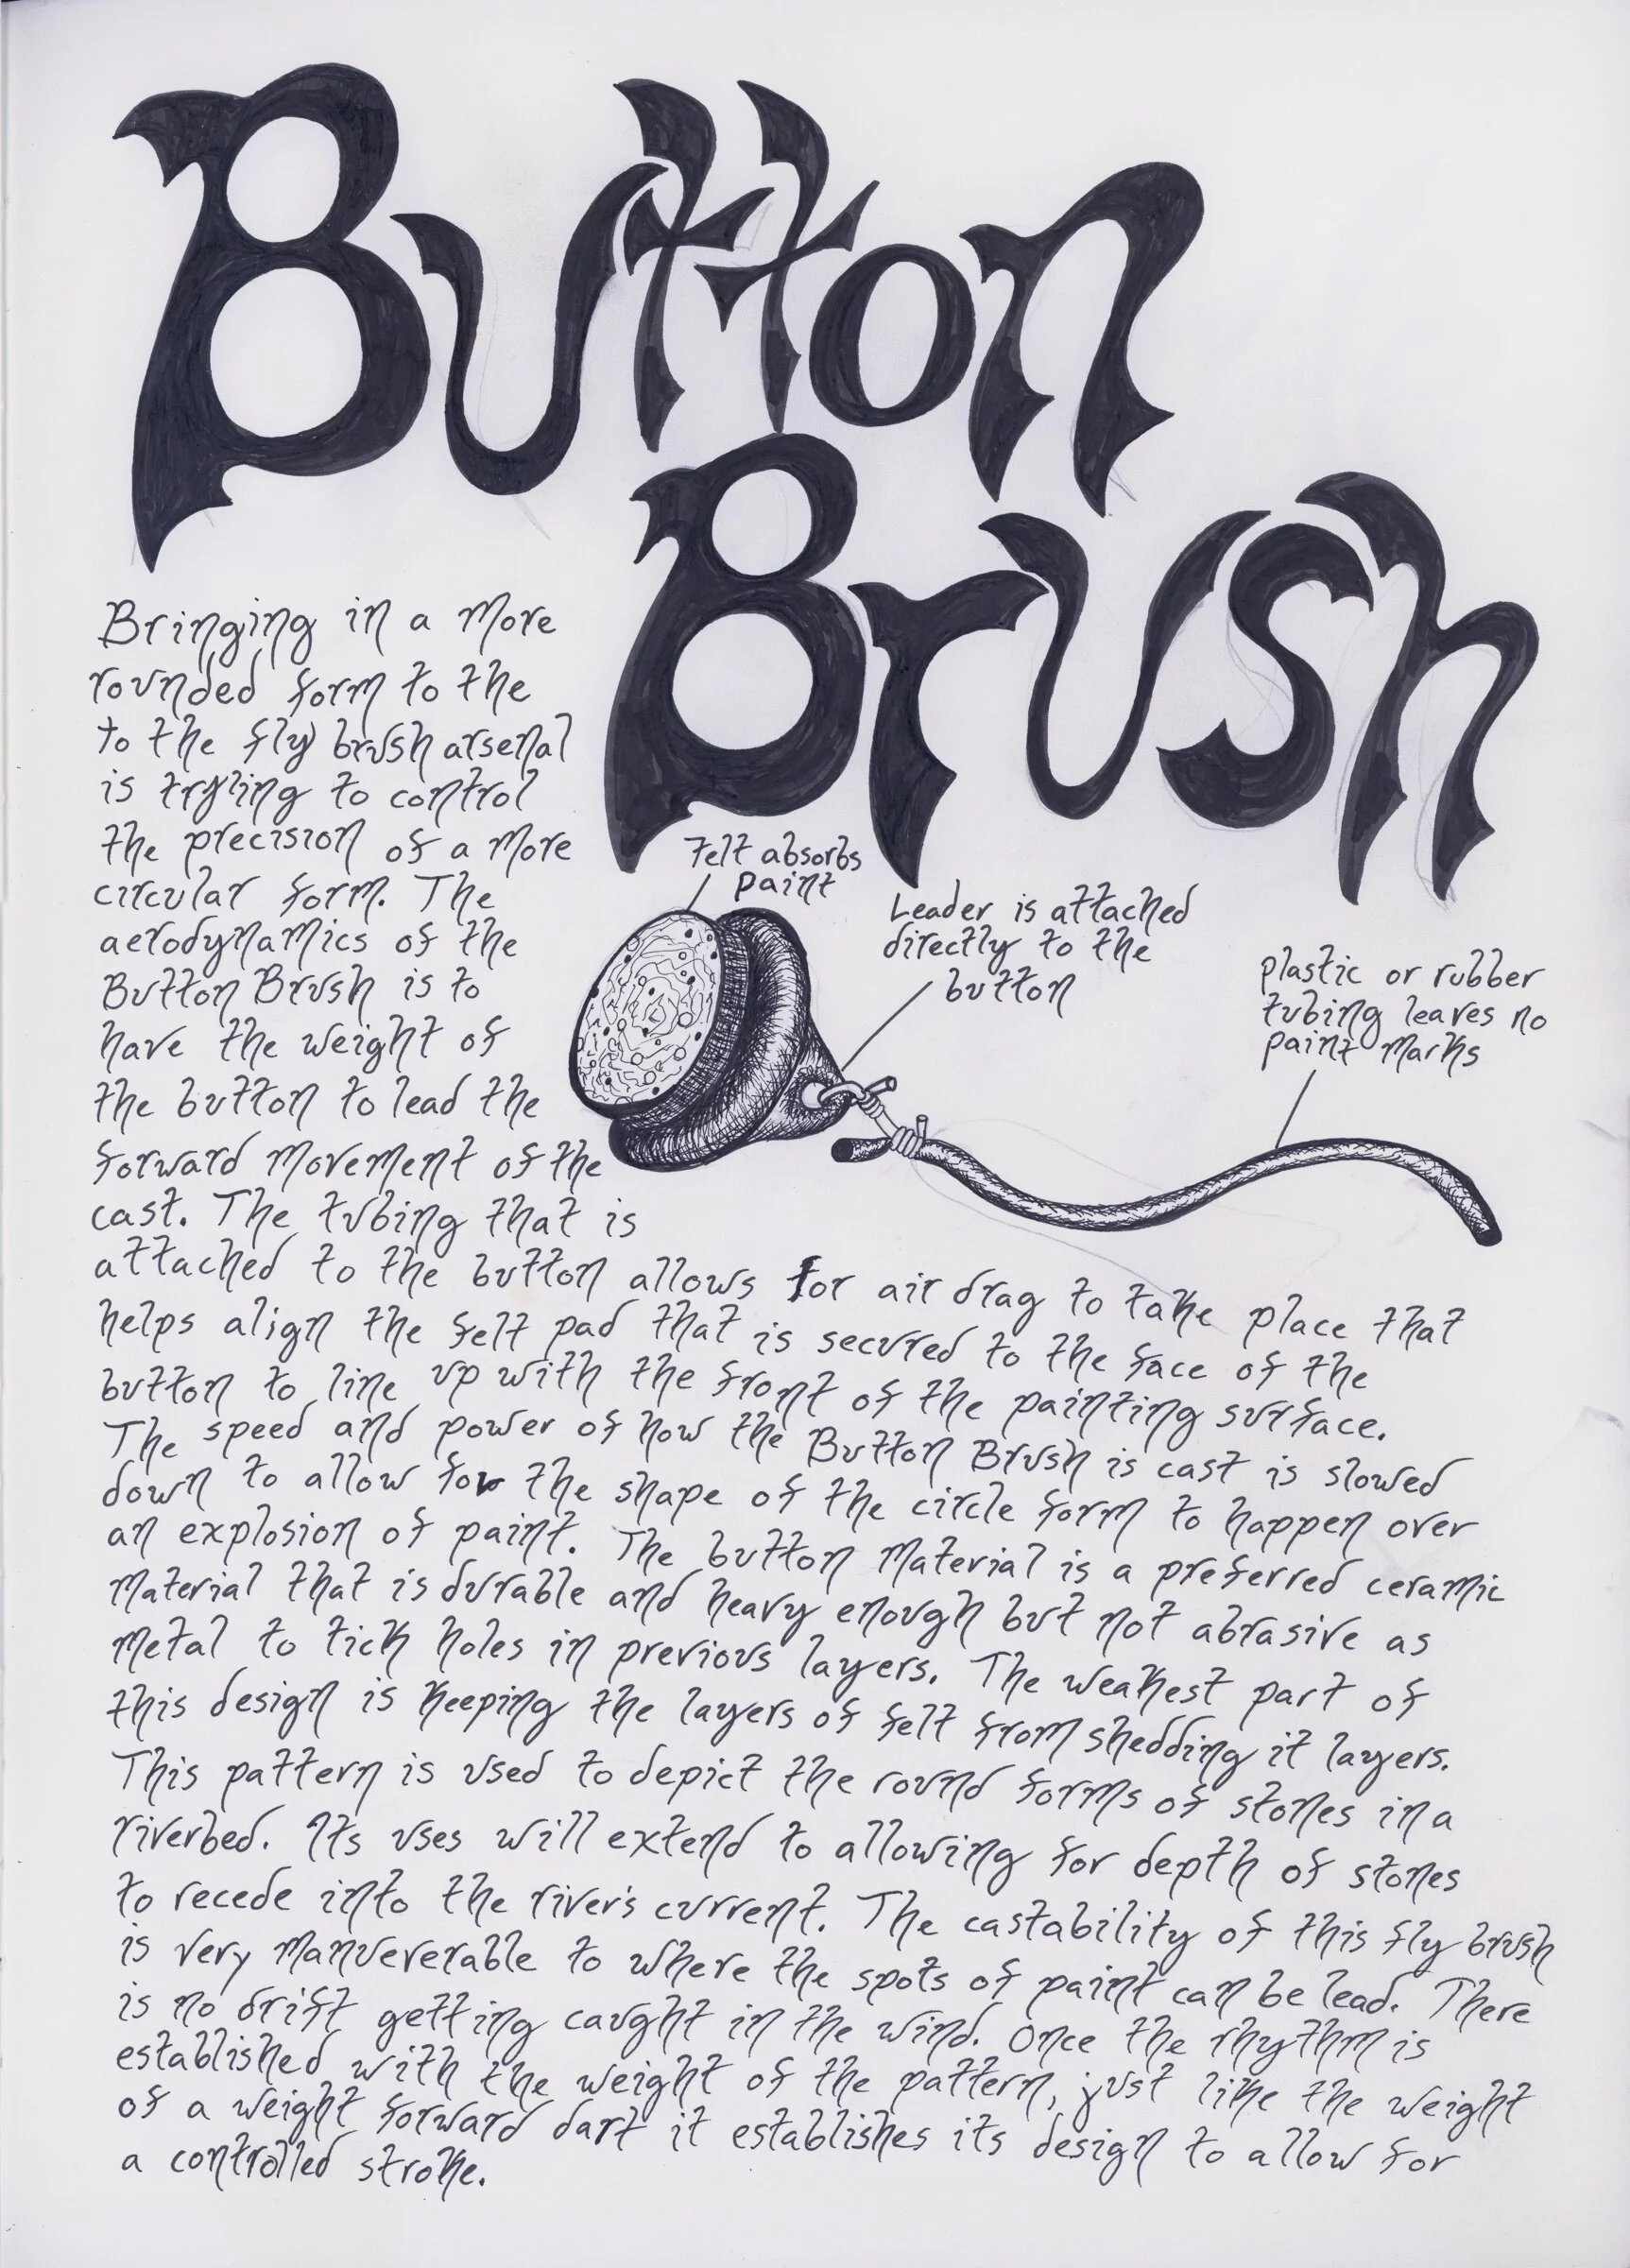 Button
Brush
Bringing in a more
rounded form to the
to the fly brush arsenal
is trying to control
the precision of a more
circular form. The
aerodynamics of the
Button Brush is to
have the weight of
the button to lead the
forward movement of the
cast. The tubing that is
attached to the button allows for air drag to take place that
helps align the felt pad that is secured to the face of the
button to line up with the front of the painting surface.
The speed and power of how the Button Brush is cast is slowed
down to allow for the shape of the circle form to happen over
an explosion of paint. The button material is a preferred ceramic
material that is durable and heavy enough but not abrasive as
metal to tick holes in previous layers. The weakest part of
this design is keeping the layers of felt from shedding it layers.
This pattern is used to depict the round forms of stones in a
riverbed. Its uses will extend to allowing for depth of stones
to recede into the river's current. The castability of this fly brush
is very manueverable to where the spots of paint can be lead. There
is no drift getting caught in the wind. Once the rhythm is
established with the weight of the pattern, just like the weight
of a weight forward dart it establishes its design to allow for
a controlled stroke.
Felt absorbs
paint
Leader is attached
directly to the
button
plastic or rubber
tubing leaves no
paint marks